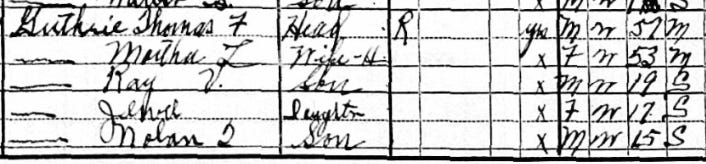 Guthrie Thomas F Head R yes M W 57 M
Martha L Wife-H x F W 53 M
Ray V. Son x M W 19 S
Jewel Daughter x F W 17 S
Nolan I Son x M W 15 S